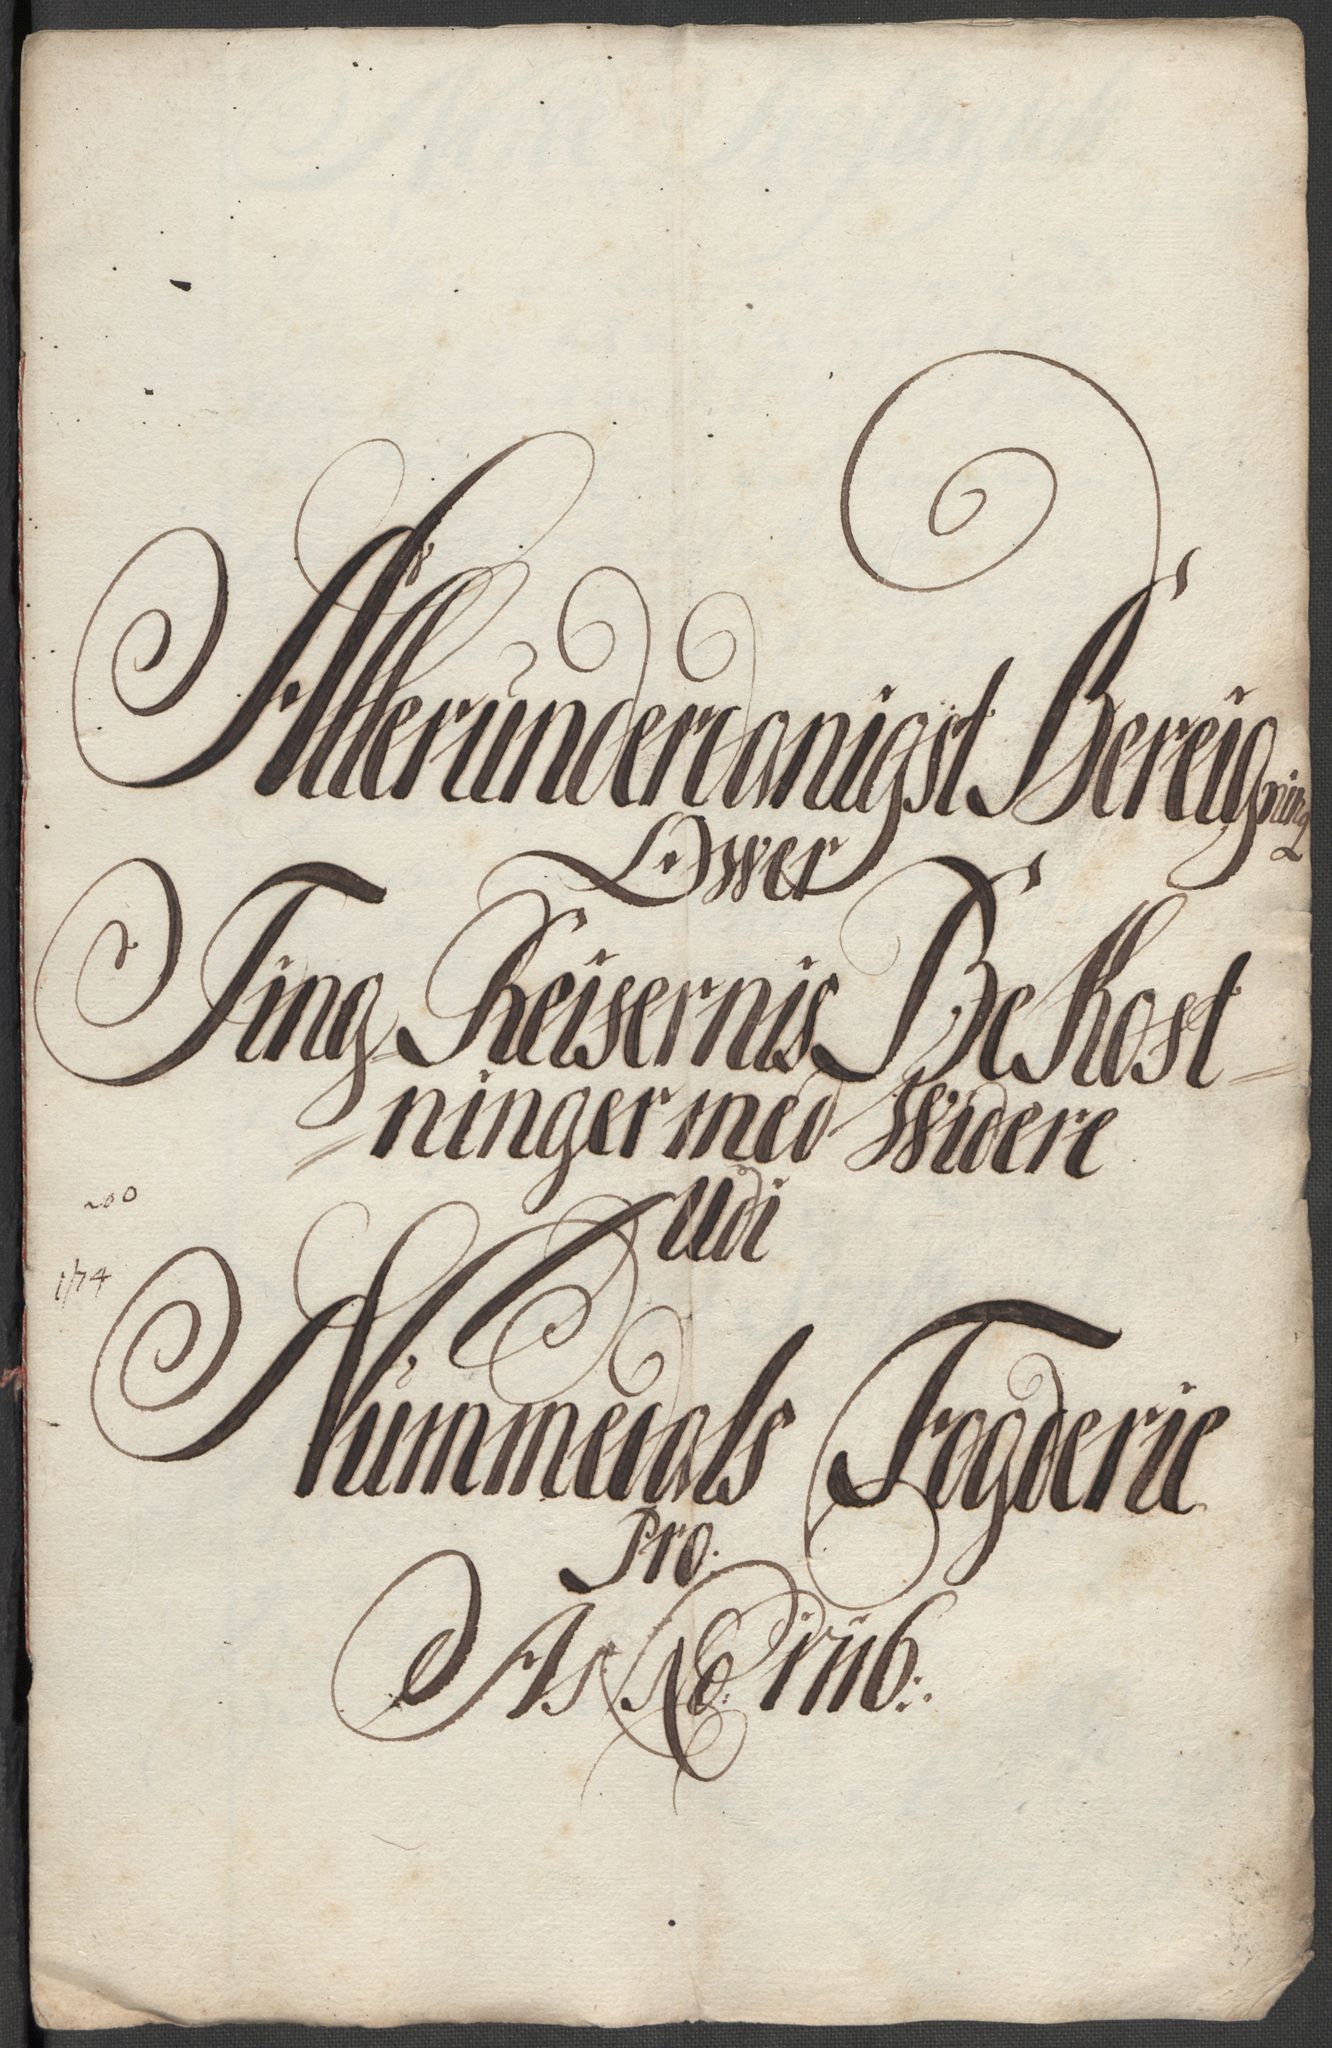 Allerunderdanigst Bereigning
Ower
Ting Reisernis Bekost=
=ninger med Widere
Udi
Nummedals Fogderie
Pro.
A.º 1716.
200